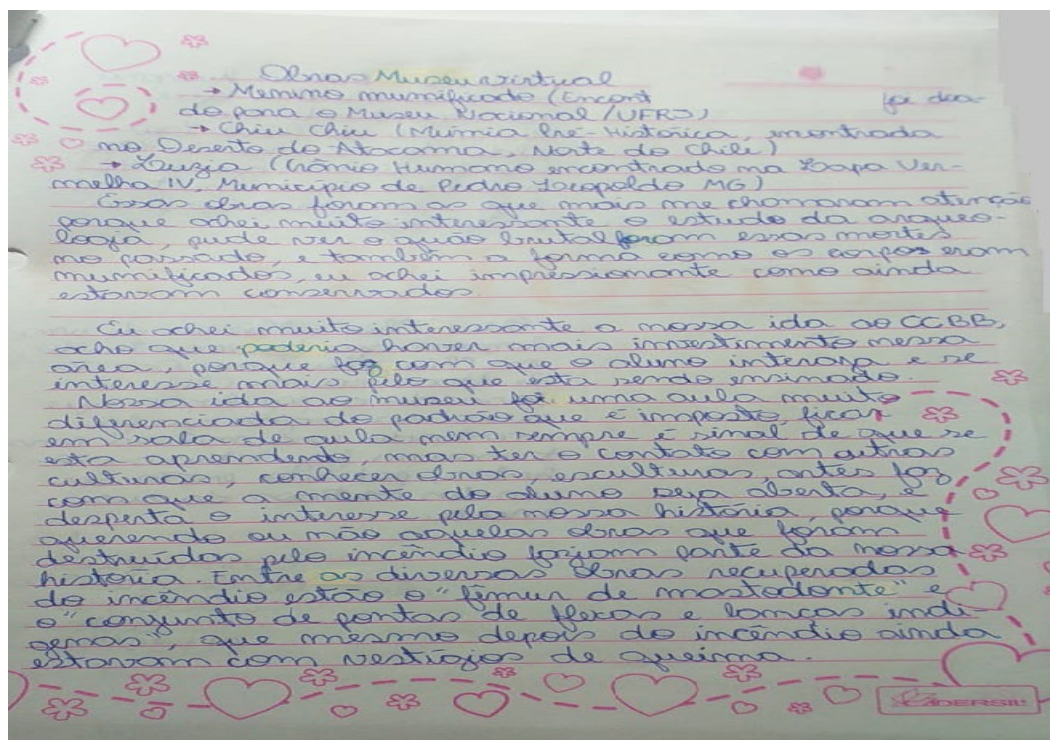 Obras Museu virtual
→ Menino mumificado (Encont foi doa-
do para o Museu Nacional/UFRJ)
→ Chiu Chiu (Múmia Pré-Histórica, encontrada
no Deserto do Atacama, Norte do Chile)
→ Luzia (Crânio Humano encontrado na Lapa Ver-
melha IV, Município de Pedro Leopoldo MG)
Essas obras foram as que mais me chamaram atenção
porque achei muito interessante o estudo da arqueo-
logia, pude ver o quão brutal foram essas mortes
no passado, e também a forma como os corpos eram
mumificados, eu achei impressionante como ainda
estavam conservados.
Eu achei muito interessante a nossa ida ao CCBB,
acho que poderia haver mais investimento nessa
área, porque faz com que o aluno interaja e se
interesse mais pelo que esta sendo ensinado.
Nossa ida ao museu foi uma aula muito
diferenciada do padrão que é imposto, ficar
em sala de aula nem sempre é sinal de que se
esta aprendendo, mas ter o contato com outras
culturas, conhecer obras, esculturas, antes faz
com que a mente do aluno seja aberta, e
desperta o interesse pela nossa história, porque
querendo ou não aquelas obras que foram
destruídas pelo incêndio faziam parte da nossa
história. Entre as diversas obras recuperadas
do incêndio estão o "fêmur de mastodonte" e
o "conjunto de pontas de flexas e lanças indi
genas", que mesmo depois do incêndio ainda
estavam com vestígios de queima.